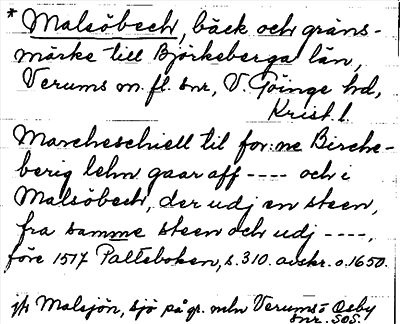 * Malsöbech, bäck och gräns-
märke till Björkeberga län,
Verums m. fl. snr, V. Göinge hd,
Krist. l.
Marcheschiell til for:ne Birche-
berig lehn gaar aff ---- och i
Malsöbech, der udj en steen,
fra samme steen och udj ----,
före 1517 Palteboken, s. 310. avskr. o. 1650.
jfr Malsjön, sjö på gr. mln Verums o Osby
snr. SOS.